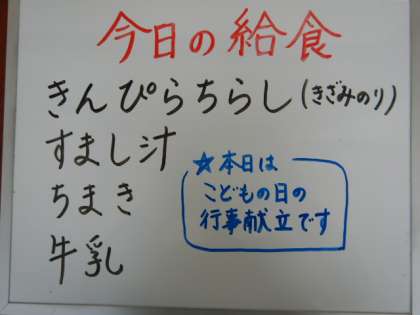 今日の給食
きんぴらちらし(きざみのり)
すまし汁
ちまき
牛乳
☆本日は
こどもの日の
行事献立です